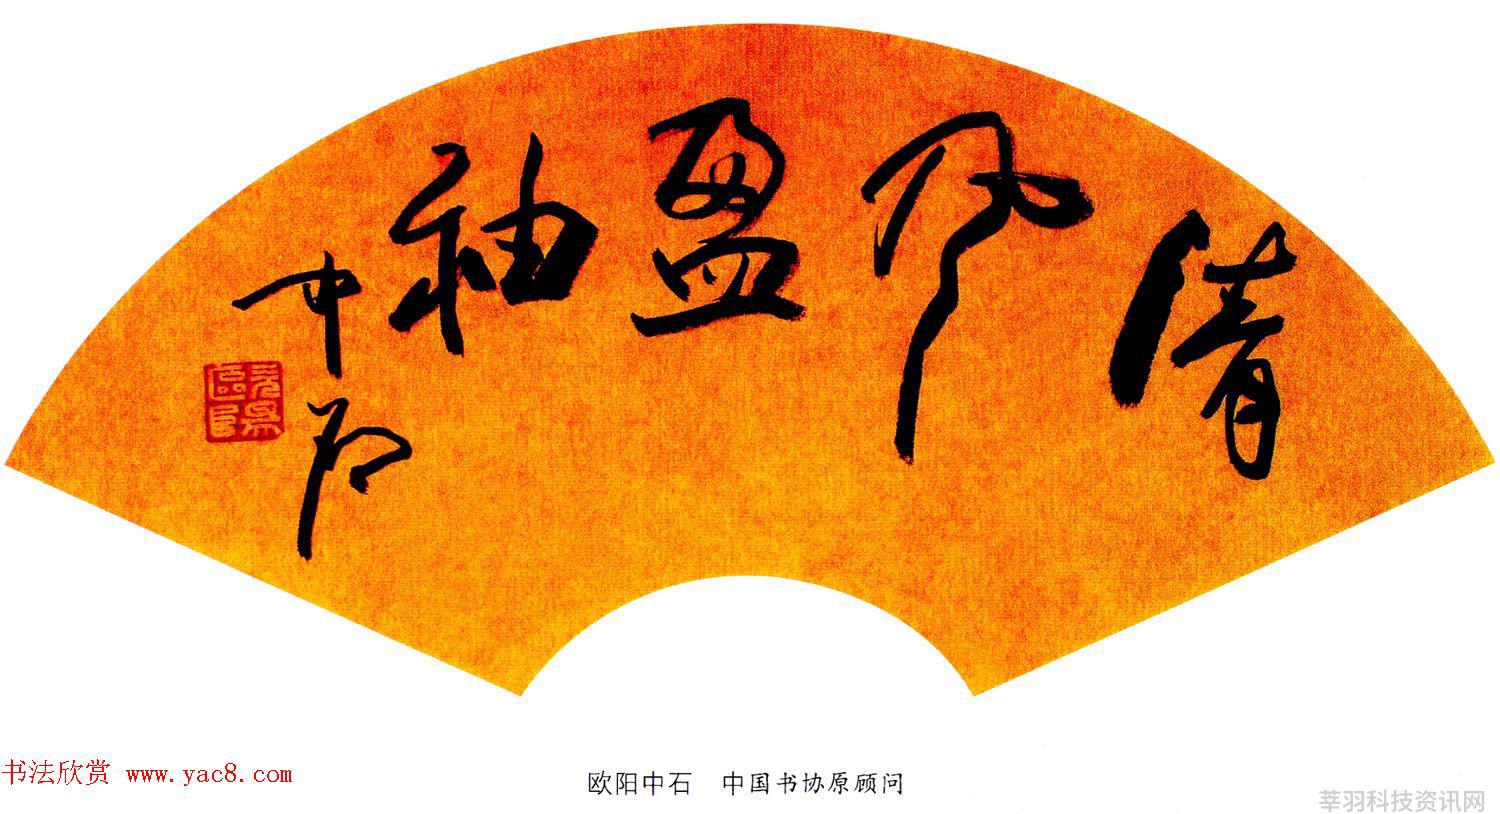 清风盈袖
中石
欧阳
欧阳中石 中国书协原顾问
书法欣赏 www.yac8.com
莘羽科技资讯网